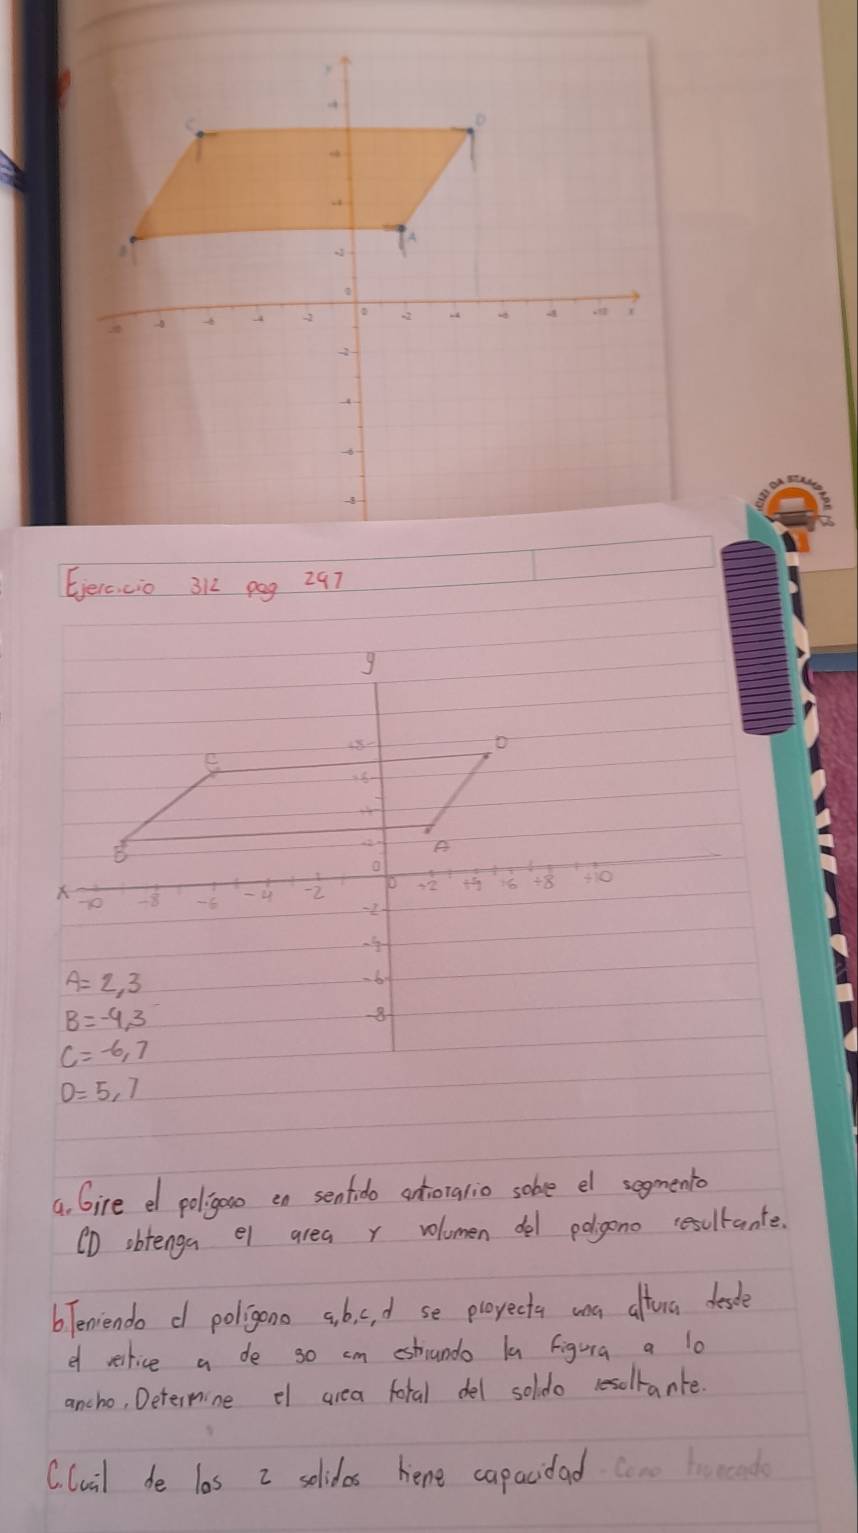 y
C
D
B
A
-2
-4
-6
-8
0
0
-10
-8
-6
-4
-2
+10
x
DA STAMPARE
Ejercicio 312 pag 297
y
C
+8
D
+6
+4
B
A
0
x
-10
-8
-6
-4
-2
0
+2
+6
+8
+10
-2
-6
-8
A= 2,3
B= -9,3
C= -6,7
D= 5,7
a. Gire el poligono en sentido antiorario sobre el segmento
CD obtenga el area y volumen del poligono resultante.
b. Teniendo el poligono a,b,c,d se proyecta una altura desde
el vertice a de 30 cm estirando la figura a lo
ancho. Determine el area total del solido resultante.
C. Cual de los 2 solidos tiene capacidad Cono truncado